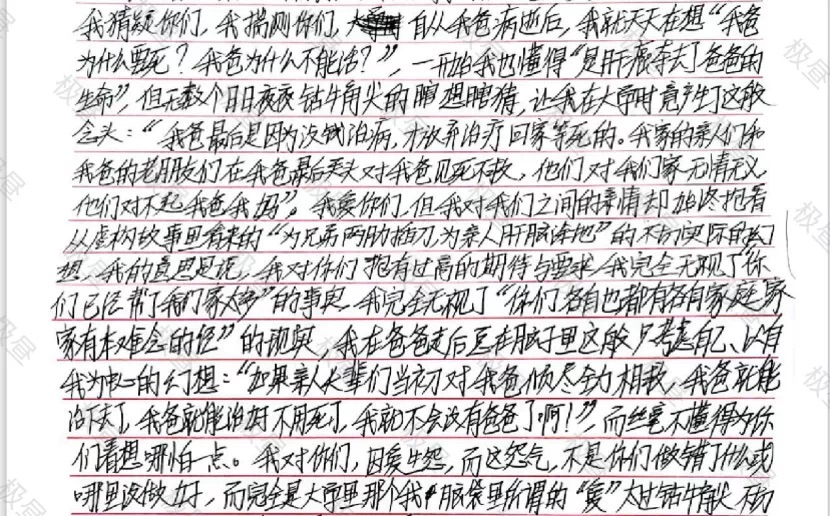 我猜疑你们,我揣测你们,自从我爸病逝后,我就天天在想“我爸
为什么要死?我爸为什么不能活?”,一开始我也懂得“是肝癌夺去了爸爸的
生命”,但无数个日日夜夜钻牛角尖的瞎想瞎猜,让我在大学时竟产生了这般
念头:“我爸最后是因为没钱治病,才放弃治疗回家等死的。我家的亲人们和
我爸的老朋友们在我爸最后关头对我爸见死不救,他们对我们家无情无义,
他们对不起我爸我妈”。我爱你们,但我对我们之间的亲情却始终抱着
从虚构故事里看来的“为兄弟两肋插刀为亲人肝脑涂地”的不切实际的幻
想。我的意思是说,我对你们抱有过高的期待与要求,我完全无视了“你
们已经帮了我们家太多”的事实,我完全无视了“你们各自也都有各自家庭、家
家有本难念的经”的现实,我在爸爸走后是在脑子里这般只考虑自己、以自
我为中心的幻想:“如果亲人长辈们当初对我爸倾尽全力相救,我爸就能
治下去了,我爸就能治好不用死了,我就不会没有爸爸了啊!”,而丝毫不懂得为你
们着想哪怕一点。我对你们,因爱生怨,而这怨气,不是你们做错了什么或
哪里没做好,而完全是大学里那个我脑袋里所谓的“爱”太过钻牛角尖、不切
极昼
极昼
极昼
极昼
极昼
极昼
极昼